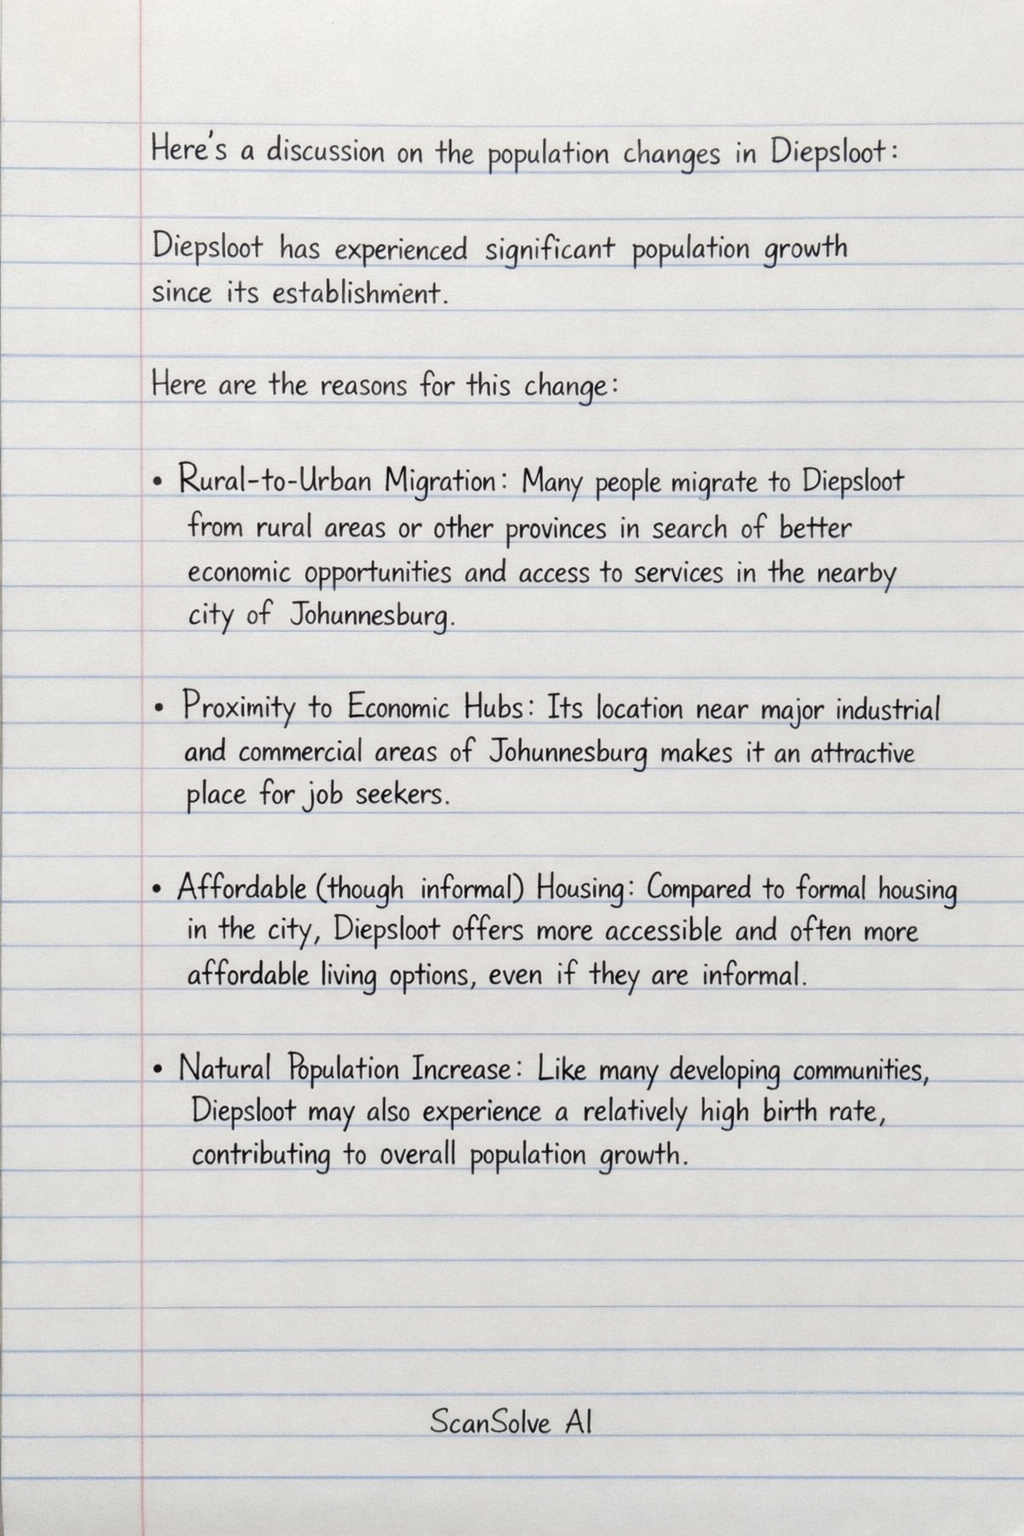 Here's a discussion on the population changes in Diepsloot:
Diepsloot has experienced significant population growth
since its establishment.
Here are the reasons for this change:
• Rural-to-Urban Migration: Many people migrate to Diepsloot
from rural areas or other provinces in search of better
economic opportunities and access to services in the nearby
city of Johunnesburg.
• Proximity to Economic Hubs: Its location near major industrial
and commercial areas of Johunnesburg makes it an attractive
place for job seekers.
• Affordable (though informal) Housing: Compared to formal housing
in the city, Diepsloot offers more accessible and often more
affordable living options, even if they are informal.
• Natural Population Increase: Like many developing communities,
Diepsloot may also experience a relatively high birth rate,
contributing to overall population growth.
ScanSolve AI